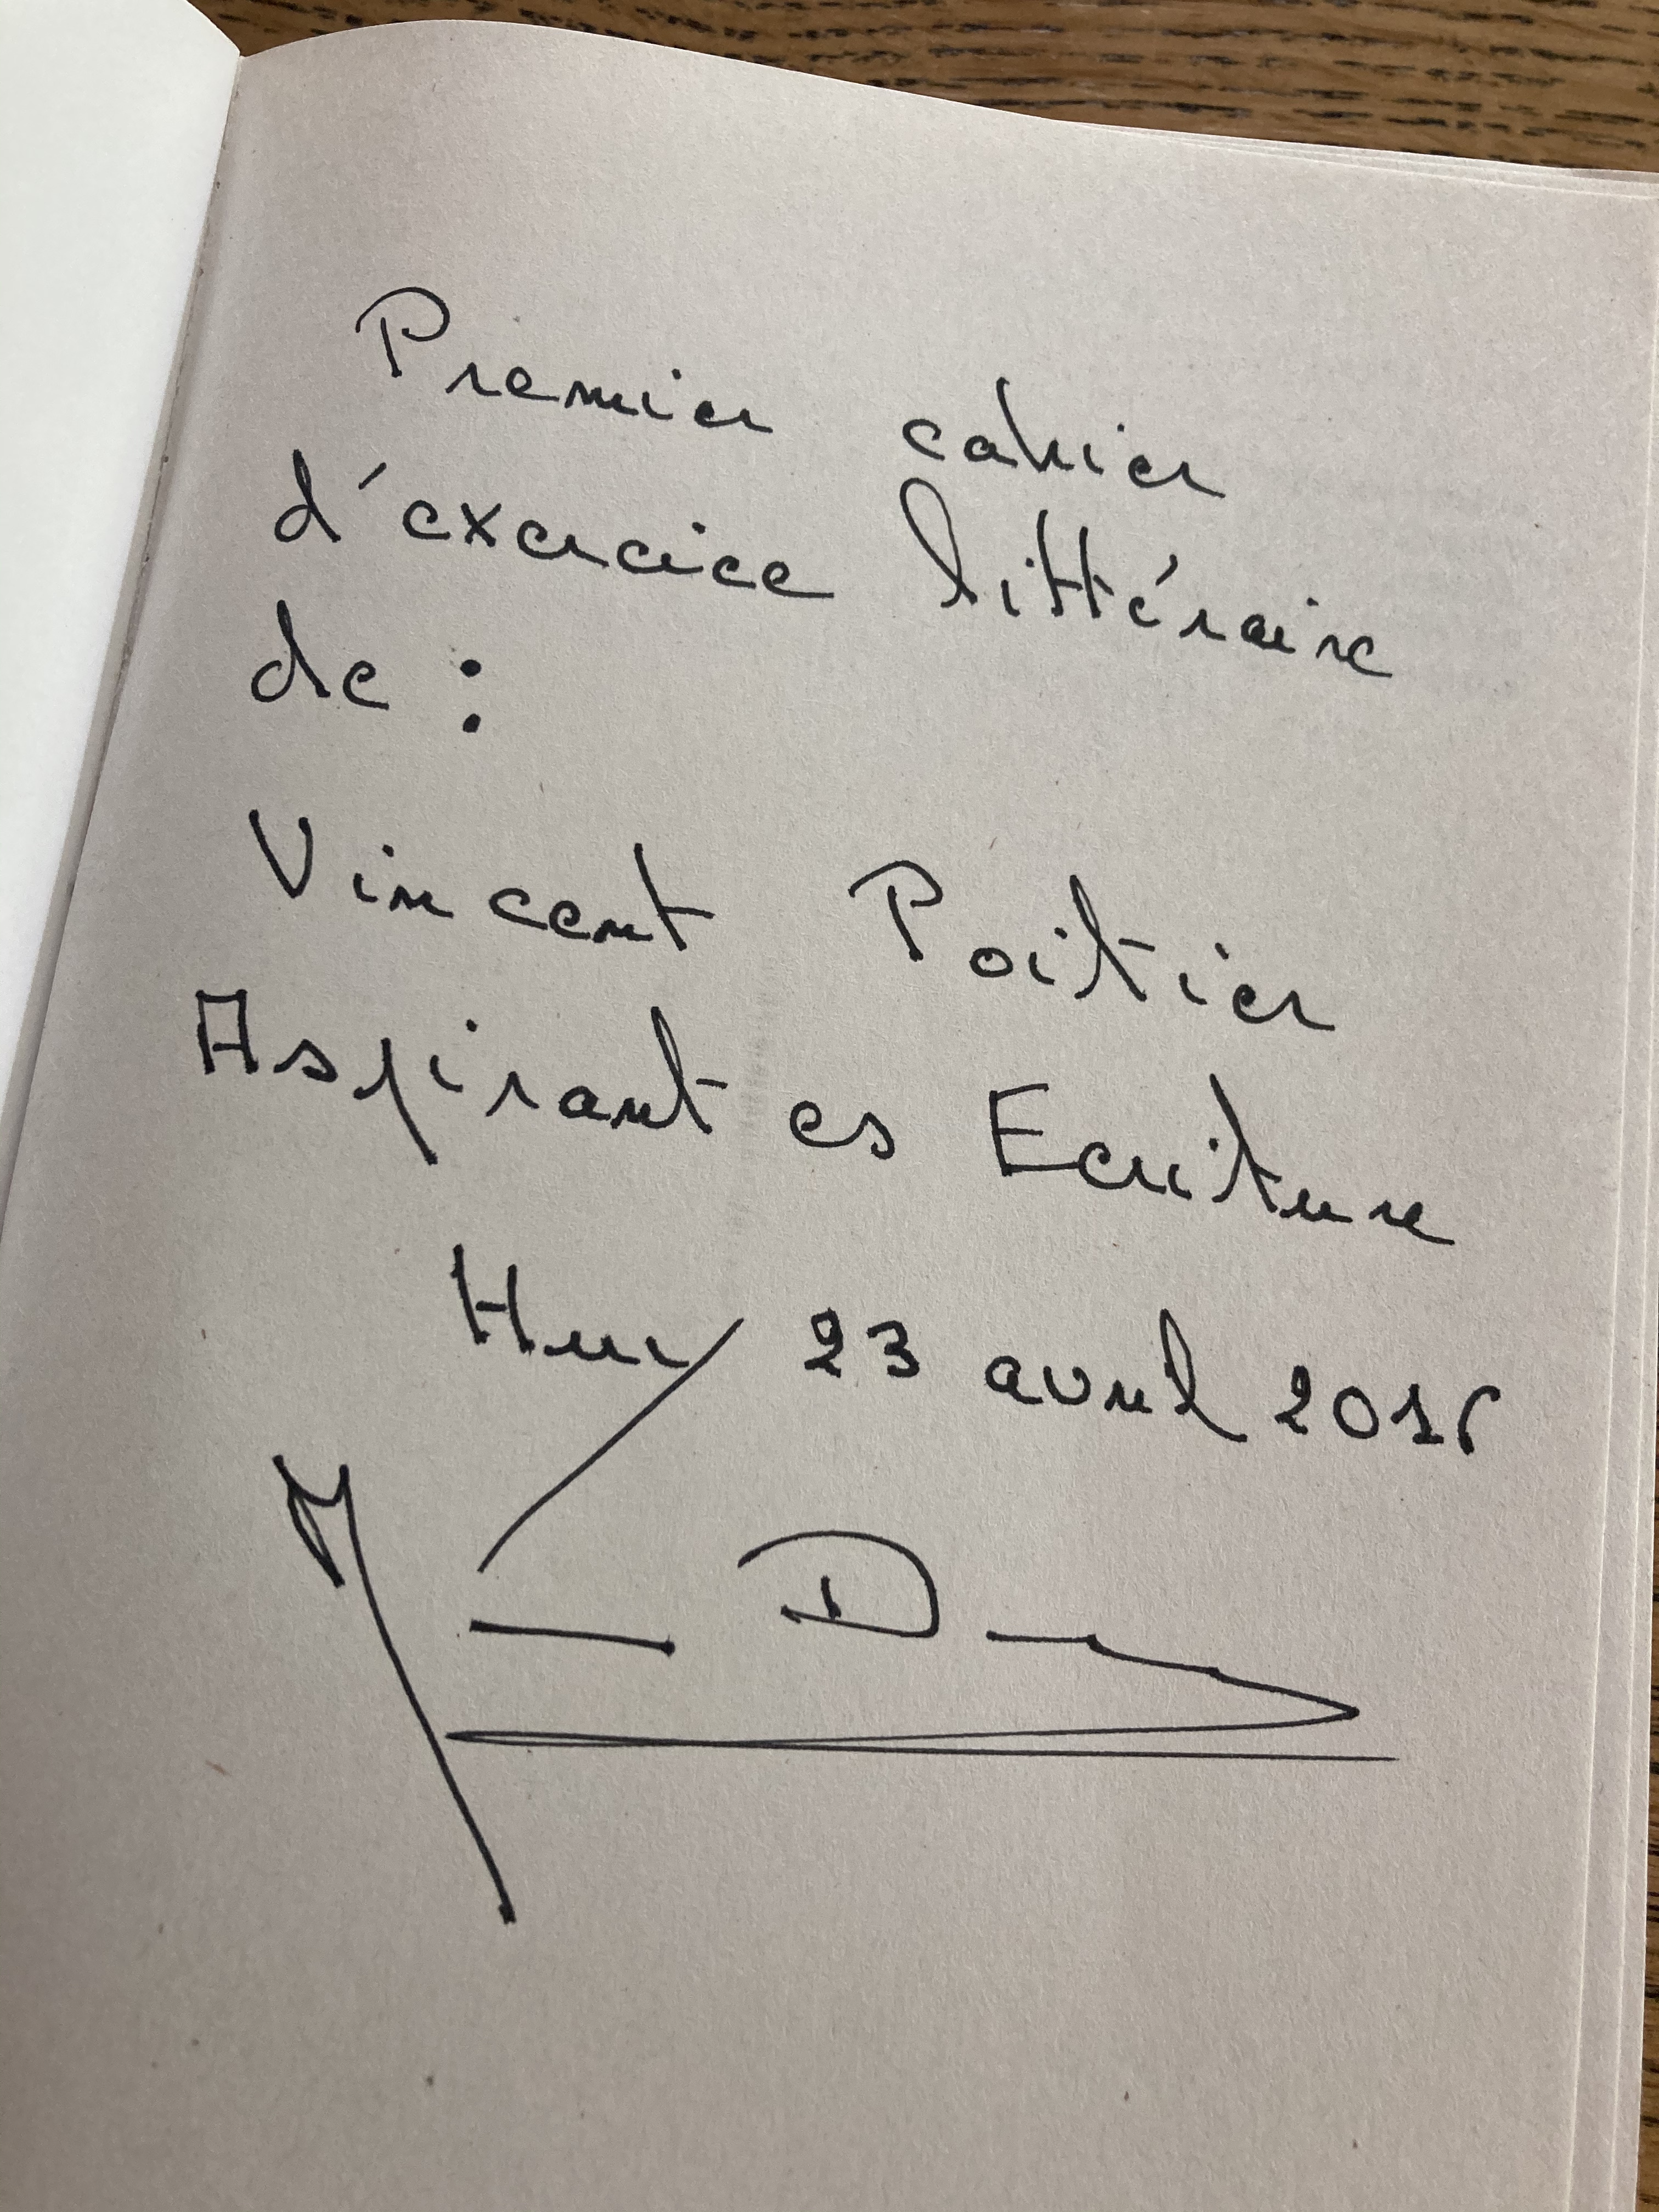 Premier cahier
d'exercice littéraire
de :
Vincent Poitier
Aspirant es Ecriture
Huy 23 avril 2016